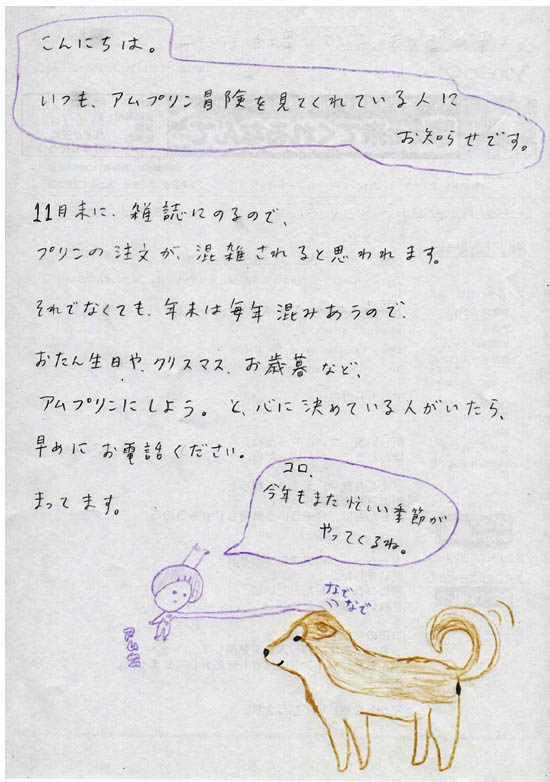 こんにちは。
いつも、アムプリン冒険を見てくれている人に
お知らせです。
11月末に、雑誌にのるので、
プリンの注文が、混雑されると思われます。
それでなくても、年末は毎年混みあうので、
おたん生日や、クリスマス、お歳暮など、
アムプリンにしよう。と、心に決めている人がいたら、
早めにお電話ください。
まってます。
コロ、
今年もまた忙しい季節が
やってくるね。
なで
なで